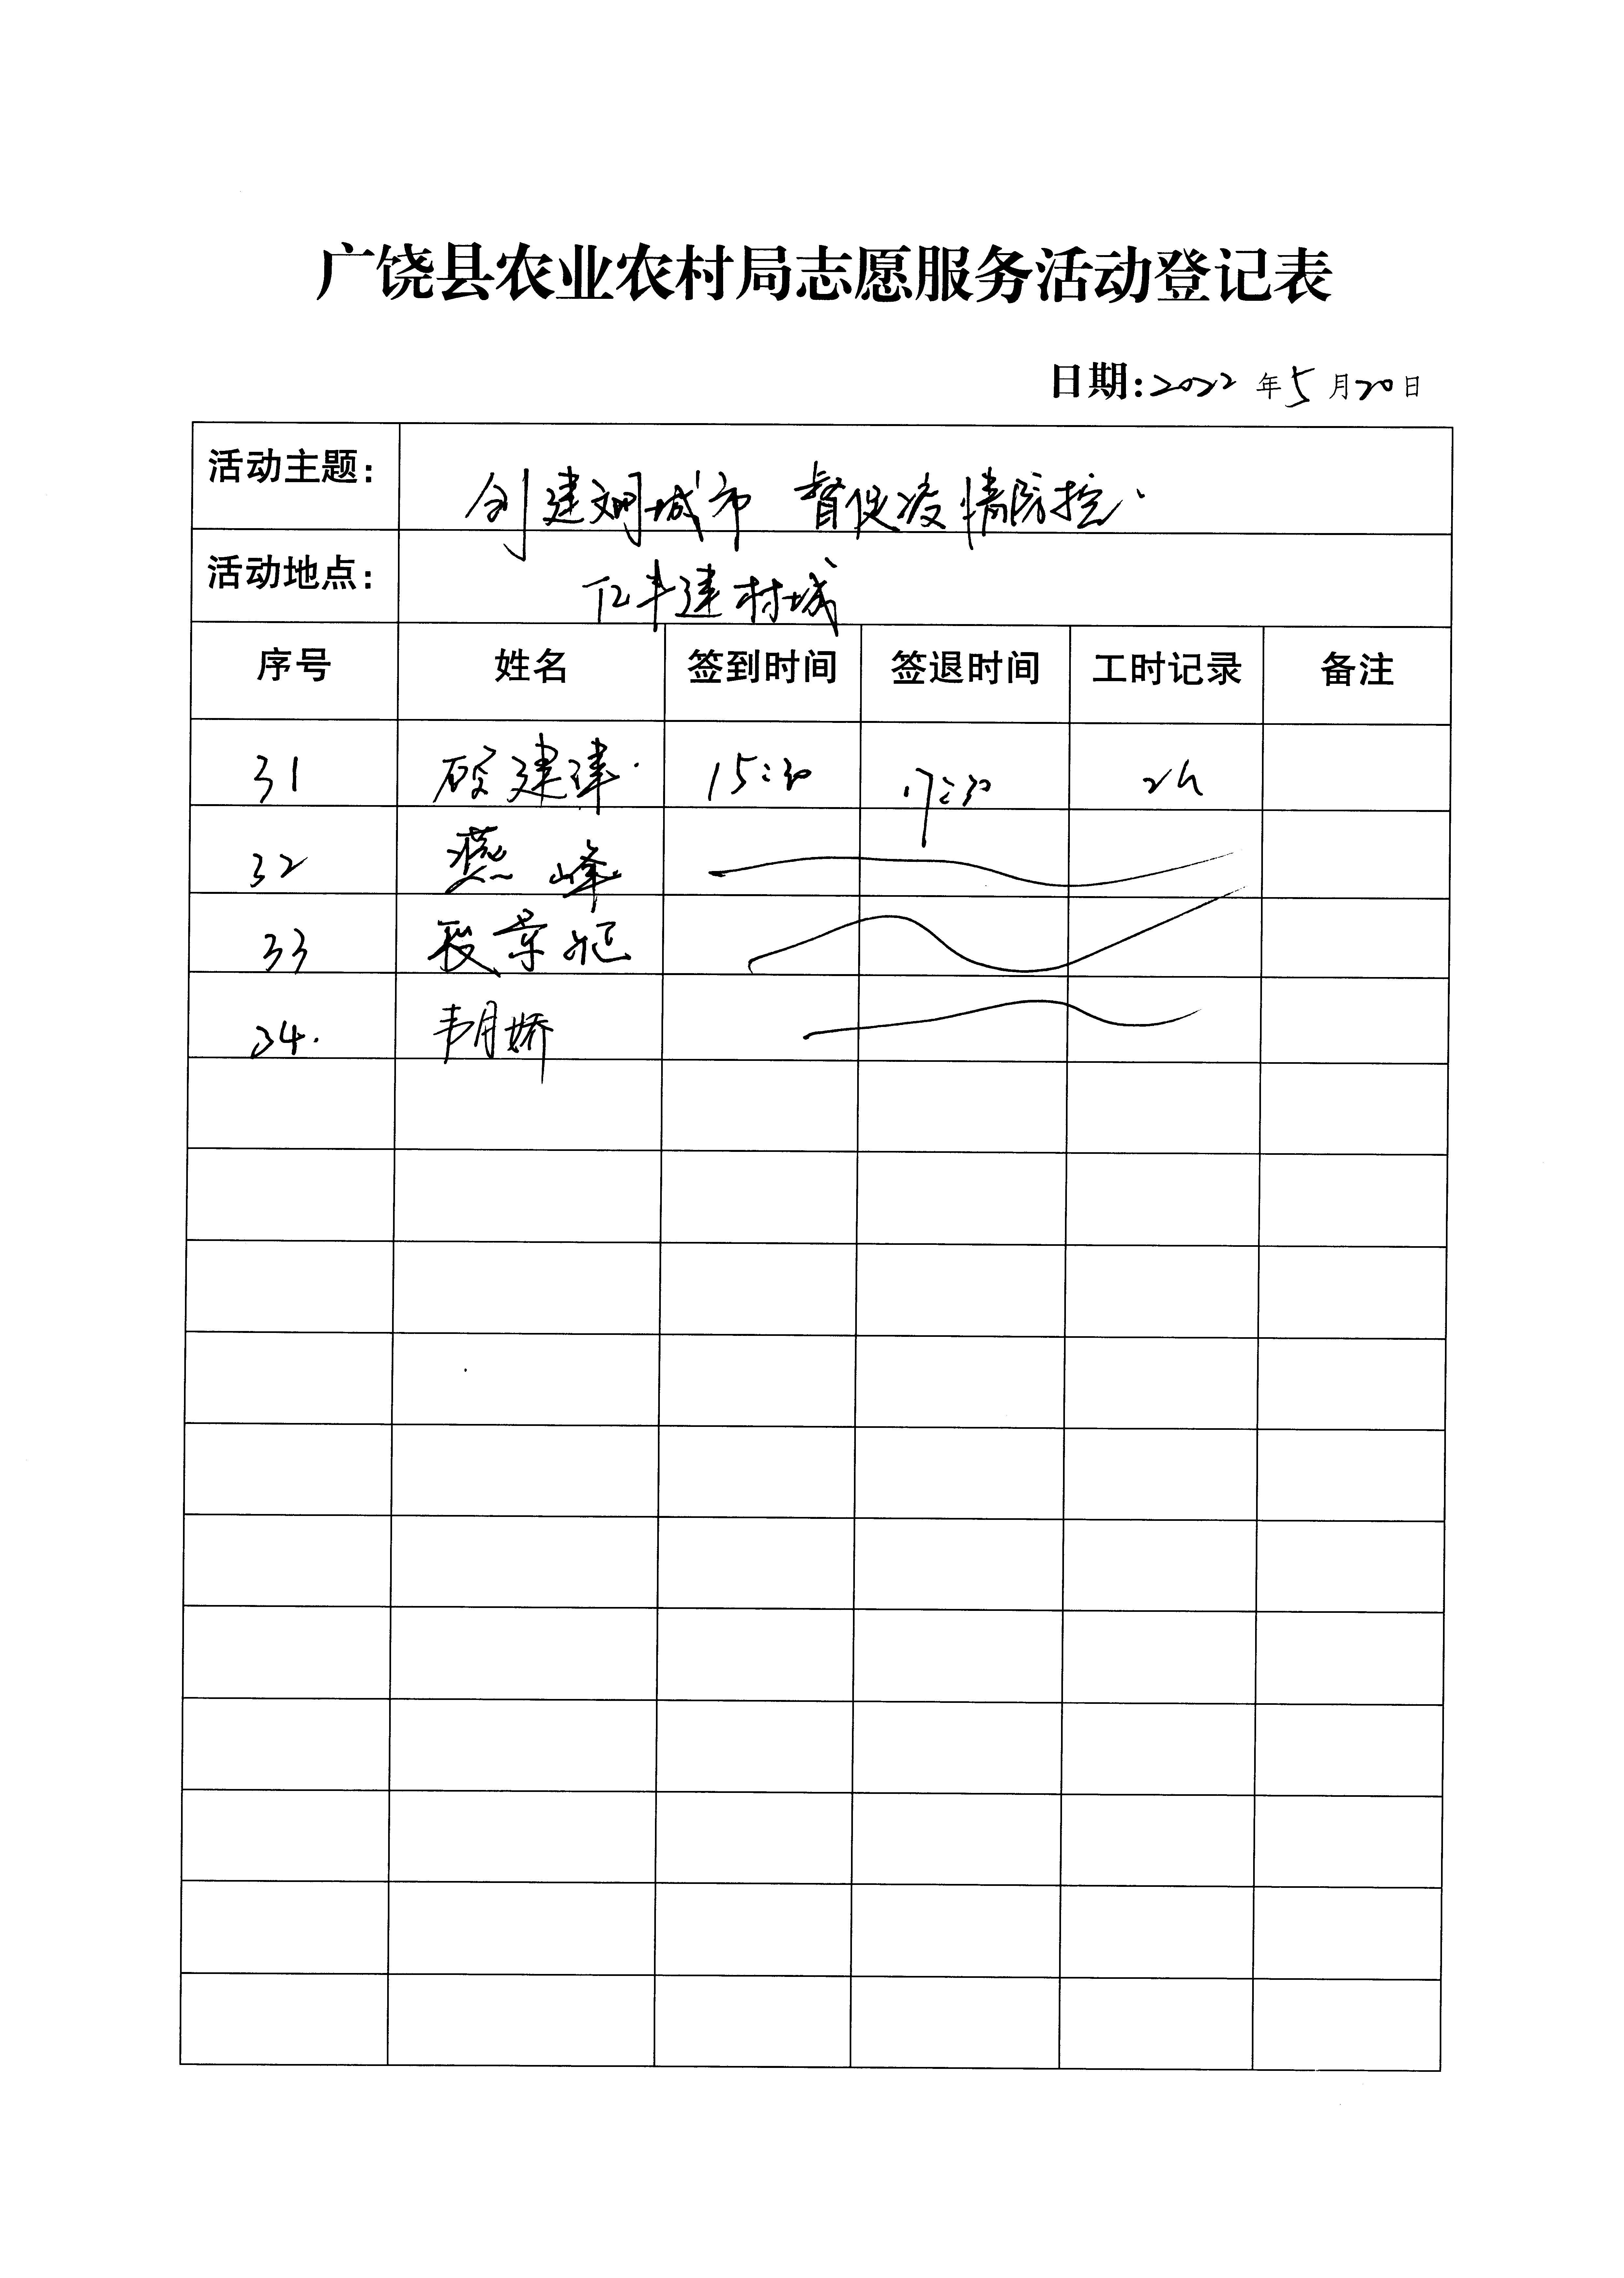 广饶县农业农村局志愿服务活动登记表
日期:2022年5月20日
活动主题: 创建文明城市 督促疫情防控.
活动地点: 亿丰建材城
序号 姓名 签到时间 签退时间 工时记录 备注
31 建津. 15:30 17:30 2h
32 燕峰
33 段景
34. 韩月娇